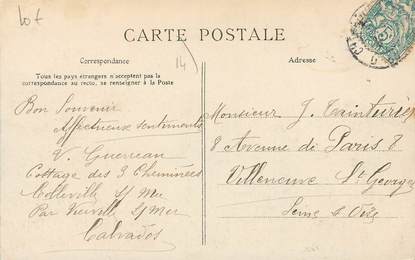 Lot
CARTE POSTALE
14
Correspondance
Adresse
Tous les pays étrangers n'acceptent pas la
correspondance au recto, se renseigner à la Poste
Bon Souvenir
Affectueux sentiments
V. Guereau
Cottage des 3 Cheminées
Colleville s/ Mer
Par Vierville s/ Mer
Calvados
Monsieur J. Tainturier
8 Avenue de Paris 8
Villeneuve St Georges
Seine & Oise